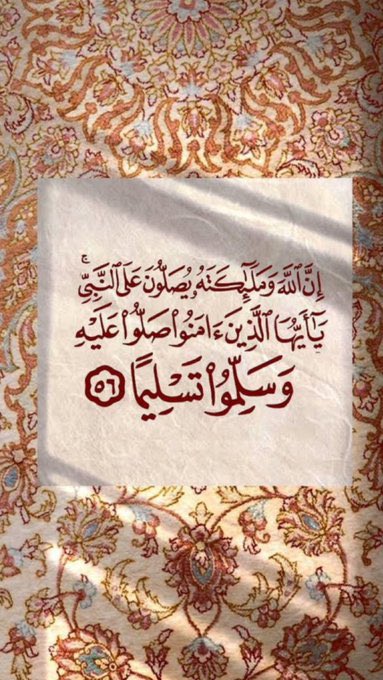 إِنَّ ٱللَّهَ وَمَلَٰٓئِكَتَهُۥ يُصَلُّونَ عَلَى ٱلنَّبِيِّۚ
يَٰٓأَيُّهَا ٱلَّذِينَ ءَامَنُوا۟ صَلُّوا۟ عَلَيْهِ
وَسَلِّمُوا۟ تَسْلِيمًا ۝٥٦